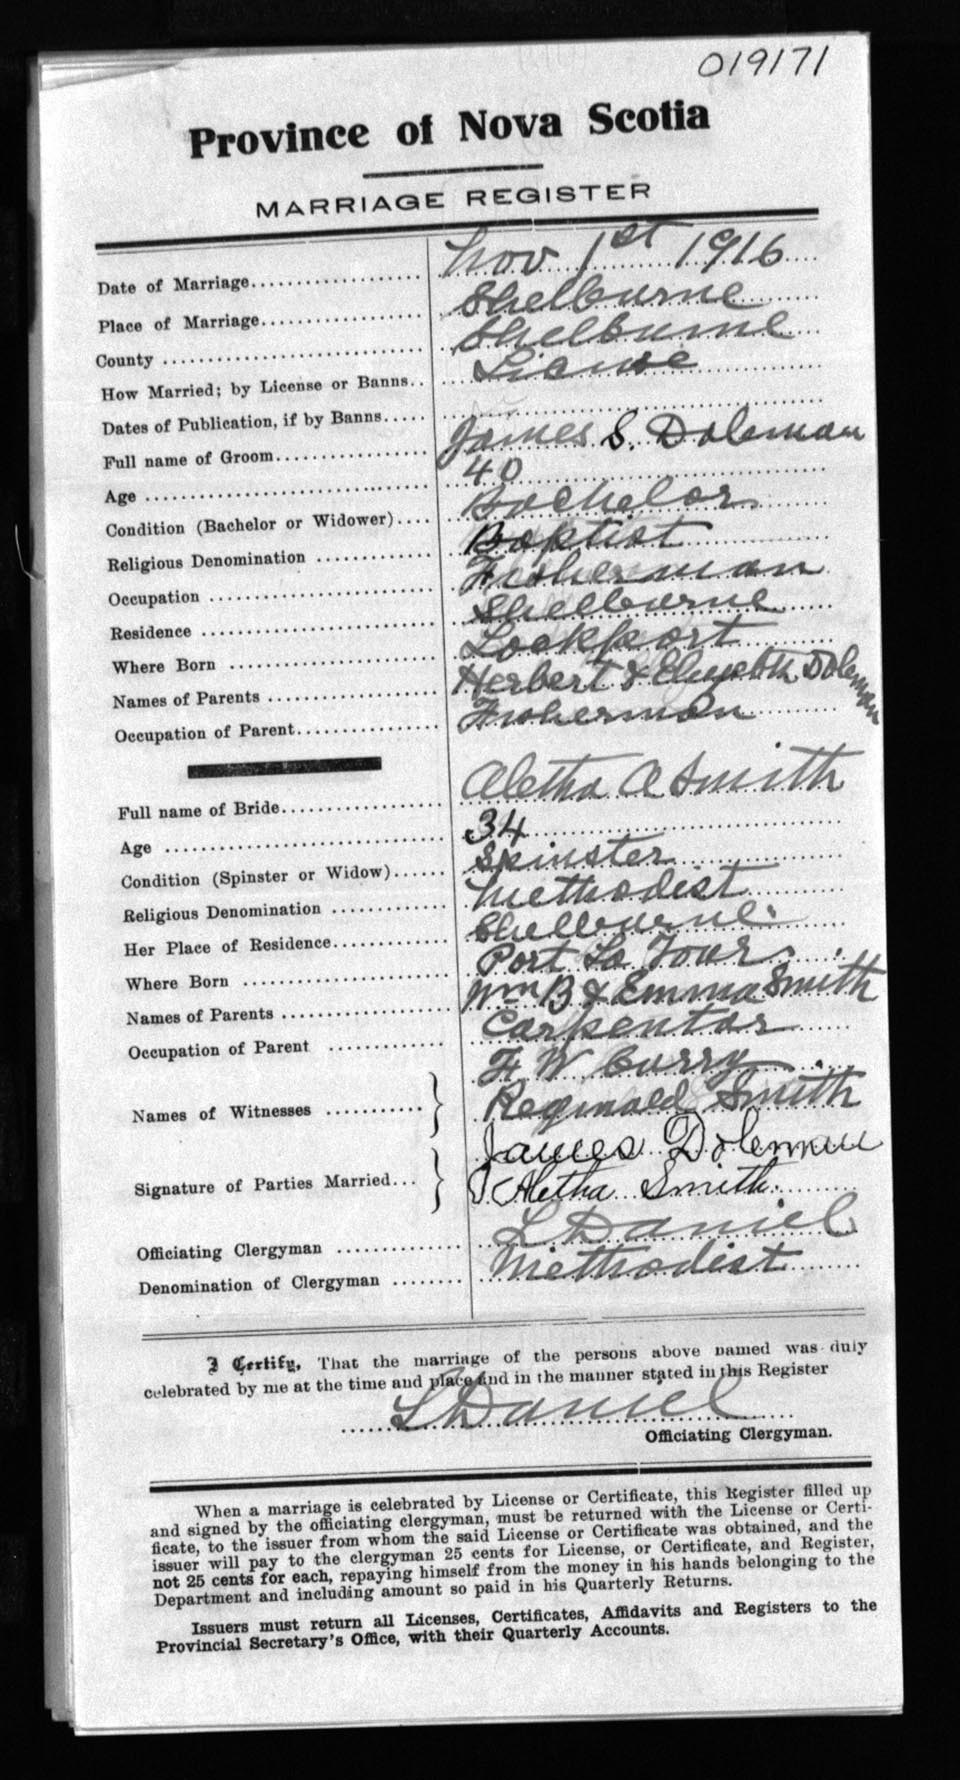 019171
Province of Nova Scotia
MARRIAGE REGISTER
Date of Marriage.................... Nov 1st 1916
Place of Marriage................... Shelburne
County .............................. Shelburne
How Married; by License or Banns.. License
Dates of Publication, if by Banns.....
Full name of Groom.................. James S. Doleman
Age ................................. 40
Condition (Bachelor or Widower).... Bachelor
Religious Denomination .............. Baptist
Occupation .......................... Fisherman
Residence ........................... Shelburne
Where Born .......................... Lockport
Names of Parents .................... Herbert & Elizabeth Doleman
Occupation of Parent................. Fisherman
Full name of Bride................... Aletha A Smith
Age ................................. 34
Condition (Spinster or Widow)...... Spinster
Religious Denomination .............. Methodist
Her Place of Residence.............. Shelburne
Where Born .......................... Port La Tour
Names of Parents .................... Wm B & Emma Smith
Occupation of Parent ................ Carpentar
Names of Witnesses ........... } F W Curry
Reginald Smith
Signature of Parties Married... } James Doleman
Aletha Smith
Officiating Clergyman ............... L Daniel
Denomination of Clergyman ........ Methodist
I Certify, That the marriage of the persons above named was duly
celebrated by me at the time and place and in the manner stated in this Register
L Daniel
Officiating Clergyman.
When a marriage is celebrated by License or Certificate, this Register filled up
and signed by the officiating clergyman, must be returned with the License or Certi-
ficate, to the issuer from whom the said License or Certificate was obtained, and the
issuer will pay to the clergyman 25 cents for License, or Certificate, and Register,
not 25 cents for each, repaying himself from the money in his hands belonging to the
Department and including amount so paid in his Quarterly Returns.
Issuers must return all Licenses, Certificates, Affidavits and Registers to the
Provincial Secretary's Office, with their Quarterly Accounts.